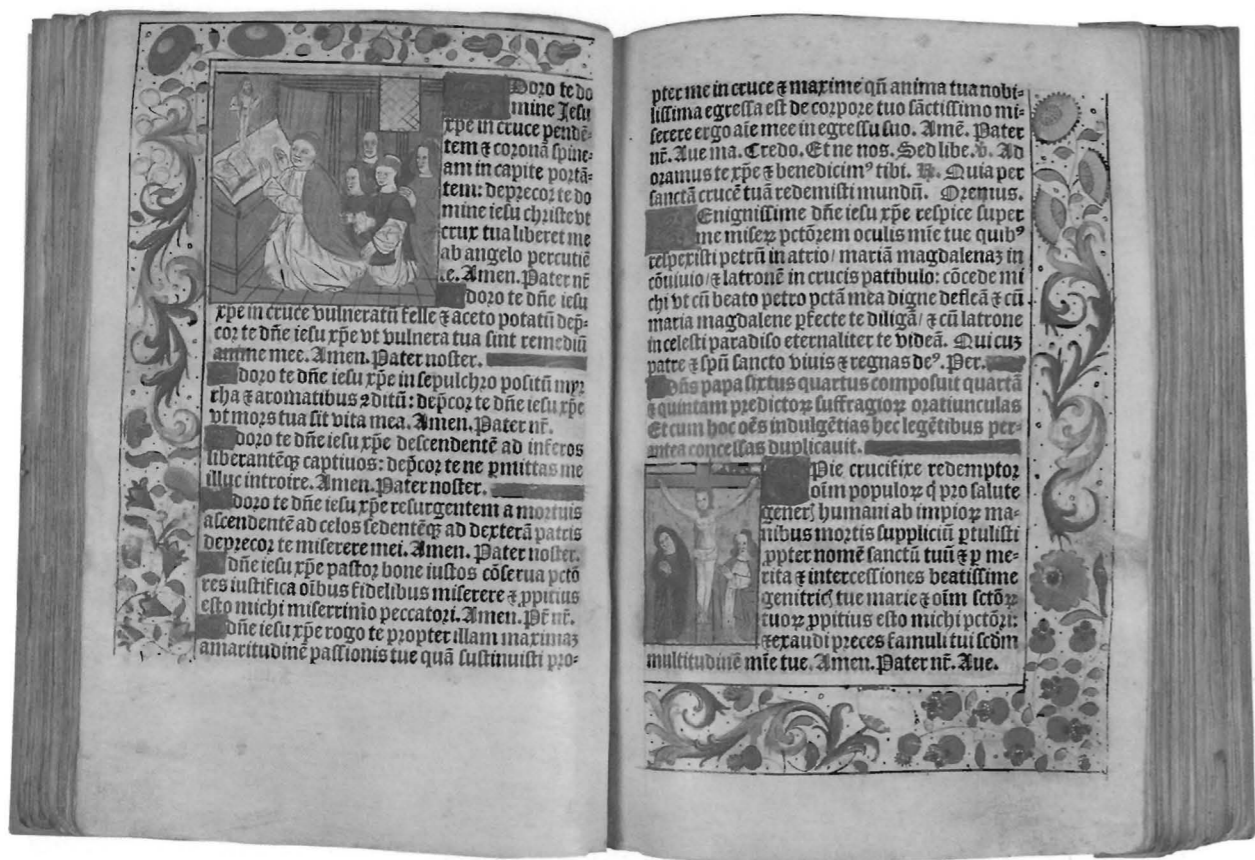 Doro te do
mine Jesu
xp̄e in cruce pendē-
tem ⁊ coronā spine-
am in capite portā-
tem: deprecor te do
mine iesu christe vt
crux tua liberet me
ab angelo percutiē
te. Amen. Pater nr̄
doro te dn̄e iesu
xp̄e in cruce vulneratū felle ⁊ aceto potatū dep̄-
cor te dn̄e iesu xp̄e vt vulnera tua sint remediū
anime mee. Amen. Pater noster.
doro te dn̄e iesu xp̄e in sepulchro positū myr
rha ⁊ aromatibus ꝯditū: dep̄cor te dn̄e iesu xp̄e
vt mors tua sit vita mea. Amen. Pater nr̄.
doro te dn̄e iesu xp̄e descendentē ad inferos
liberantēqꝫ captiuos: dep̄cor te ne ꝑmittas me
illuc introire. Amen. Pater noster.
doro te dn̄e iesu xp̄e resurgentem a mortuis
ascendentē ad celos sedentēqꝫ ad dexterā patris
deprecor te miserere mei. Amen. Pater noster.
dn̄e iesu xp̄e pastor bone iustos cōserua pctō
res iustifica oībus fidelibus miserere ⁊ ꝓpitius
esto michi miserrimo peccatori. Amen. Pr̄ nr̄.
dn̄e iesu xp̄e rogo te propter illam maximaꝫ
amaritudinē passionis tue quā sustinuisti pro-
pter me in cruce ⁊ maxime qn̄ anima tua nobi-
lissima egressa est de corpore tuo sāctissimo mi-
serere ergo aīe mee in egressu suo. Amē. Pater
nr̄. Aue ma. Credo. Et ne nos. Sed libe. ꝟ. Ad
oramus te xp̄e ⁊ benedicimꝰ tibi. ℟. Quia per
sanctā crucē tuā redemisti mundū. Oremus.
Enignissime dn̄e iesu xp̄e respice super
me miseꝝ pctōrem oculis mīe tue quibꝰ
respexisti petrū in atrio/ mariā magdalenaꝫ in
cōuiuio/ ⁊ latronē in crucis patibulo: cōcede mi
chi vt cū beato petro pctā mea digne defleā ⁊ cū
maria magdalene ꝑfecte te diligā/ ⁊ cū latrone
in celesti paradiso eternaliter te videā. Qui cuꝫ
patre ⁊ spū sancto viuis ⁊ regnas deꝰ. Per.
Dn̄s papa sixtus quartus composuit quartā
⁊ quintam predictoꝝ suffragioꝝ oratiunculas
Et cum hoc oēs indulgētias hec legētibus per-
antea concessas duplicauit.
Pie crucifixe redemptor
oīm populoꝝ q̄ pro salute
generꝭ humani ab impioꝝ ma-
nibus mortis suppliciū ꝑtulisti
ꝓpter nomē sanctū tuū ⁊ ꝑ me-
rita ⁊ intercessiones beatissime
genitricꝭ tue marie ⁊ oīm sctōꝝ
tuoꝝ ꝓpitius esto michi pctōri:
⁊ exaudi preces famuli tui scd̄m
multitudinē mīe tue. Amen. Pater nr̄. Aue.